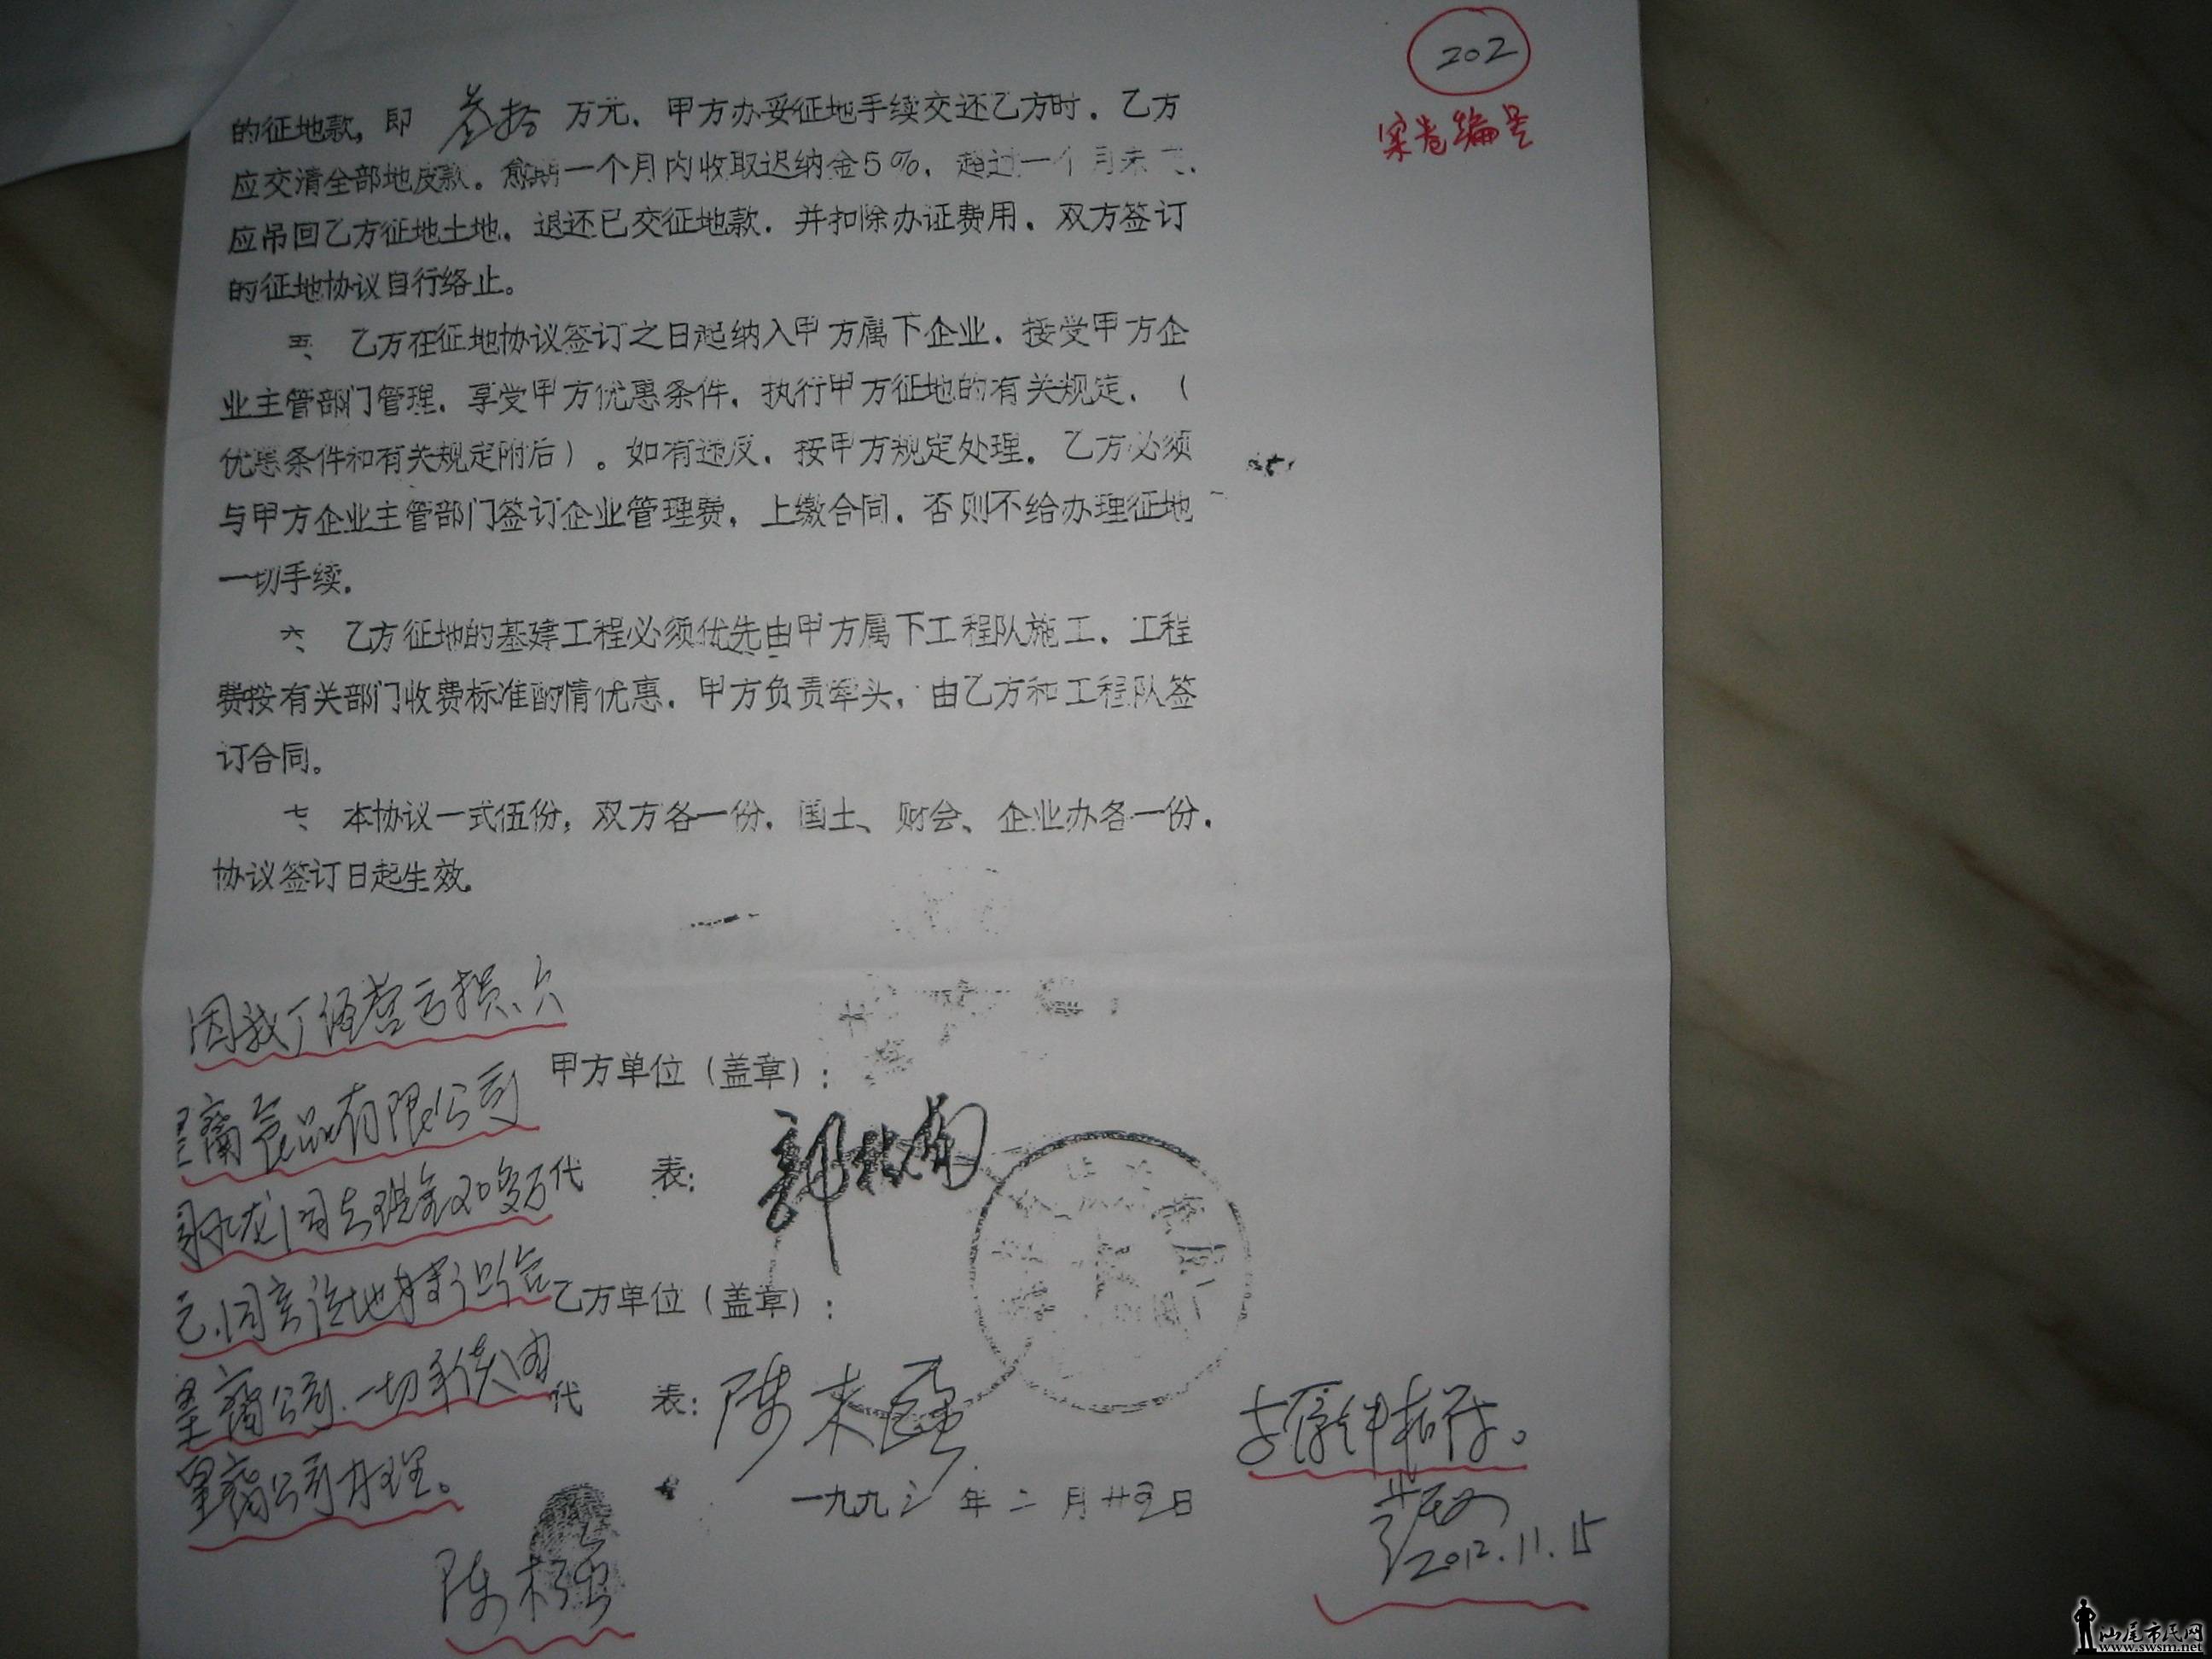 202
案卷编号
的征地款，即 叁拾 万元、甲方办妥征地手续交还乙方时，乙方
应交清全部地皮款。愈期一个月内收取迟纳金5%，超过一个月未
应吊回乙方征地土地，退还已交征地款，并扣除办证费用，双方签订
的征地协议自行络止。
五、乙方在征地协议签订之日起纳入甲方属下企业，接受甲方企
业主管部门管理，享受甲方优惠条件，执行甲方征地的有关规定，（
优惠条件和有关规定附后）。如有违反，按甲方规定处理，乙方必须
与甲方企业主管部门签订企业管理费，上缴合同，否则不给办理征地
一切手续。
六、乙方征地的基建工程必须优先由甲方属下工程队施工，工程
费按有关部门收费标准酌情优惠，甲方负责牵头，由乙方和工程队签
订合同。
七、本协议一式伍份，双方各一份，国土、财会、企业办各一份，
协议签订日起生效。
因我厂经营亏损、欠
食品有限公司
同志现金
同意该地
公司、一切手续由
公司办理。
甲方单位（盖章）：
代 表：
乙方单位（盖章）：
代 表：陈
一九九三年二月廿五日
陈
与原件相符。
2012.11.15
汕尾市民网
www.swsm.net